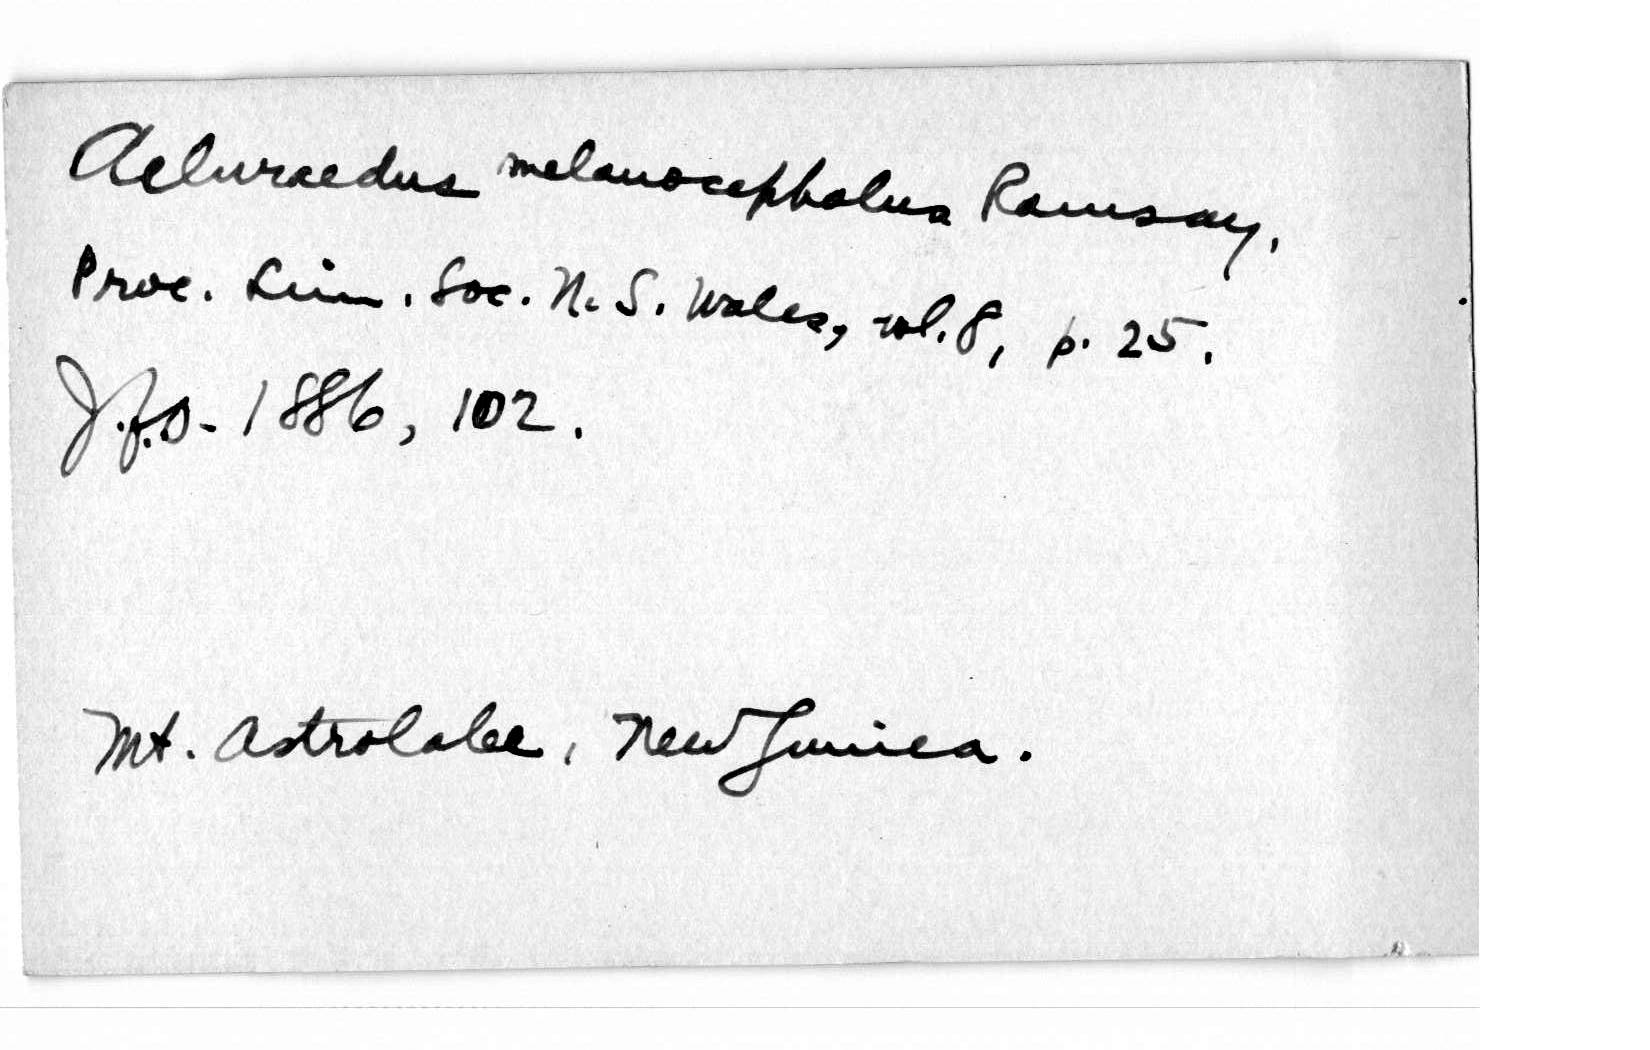 Aeluraedus melanocephalus Ramsay,
Proc. Linn. Soc. N. S. Wales, vol. 8, p. 25.
J.f.O. 1886, 102.
Mt. Astrolabe, New Guinea.